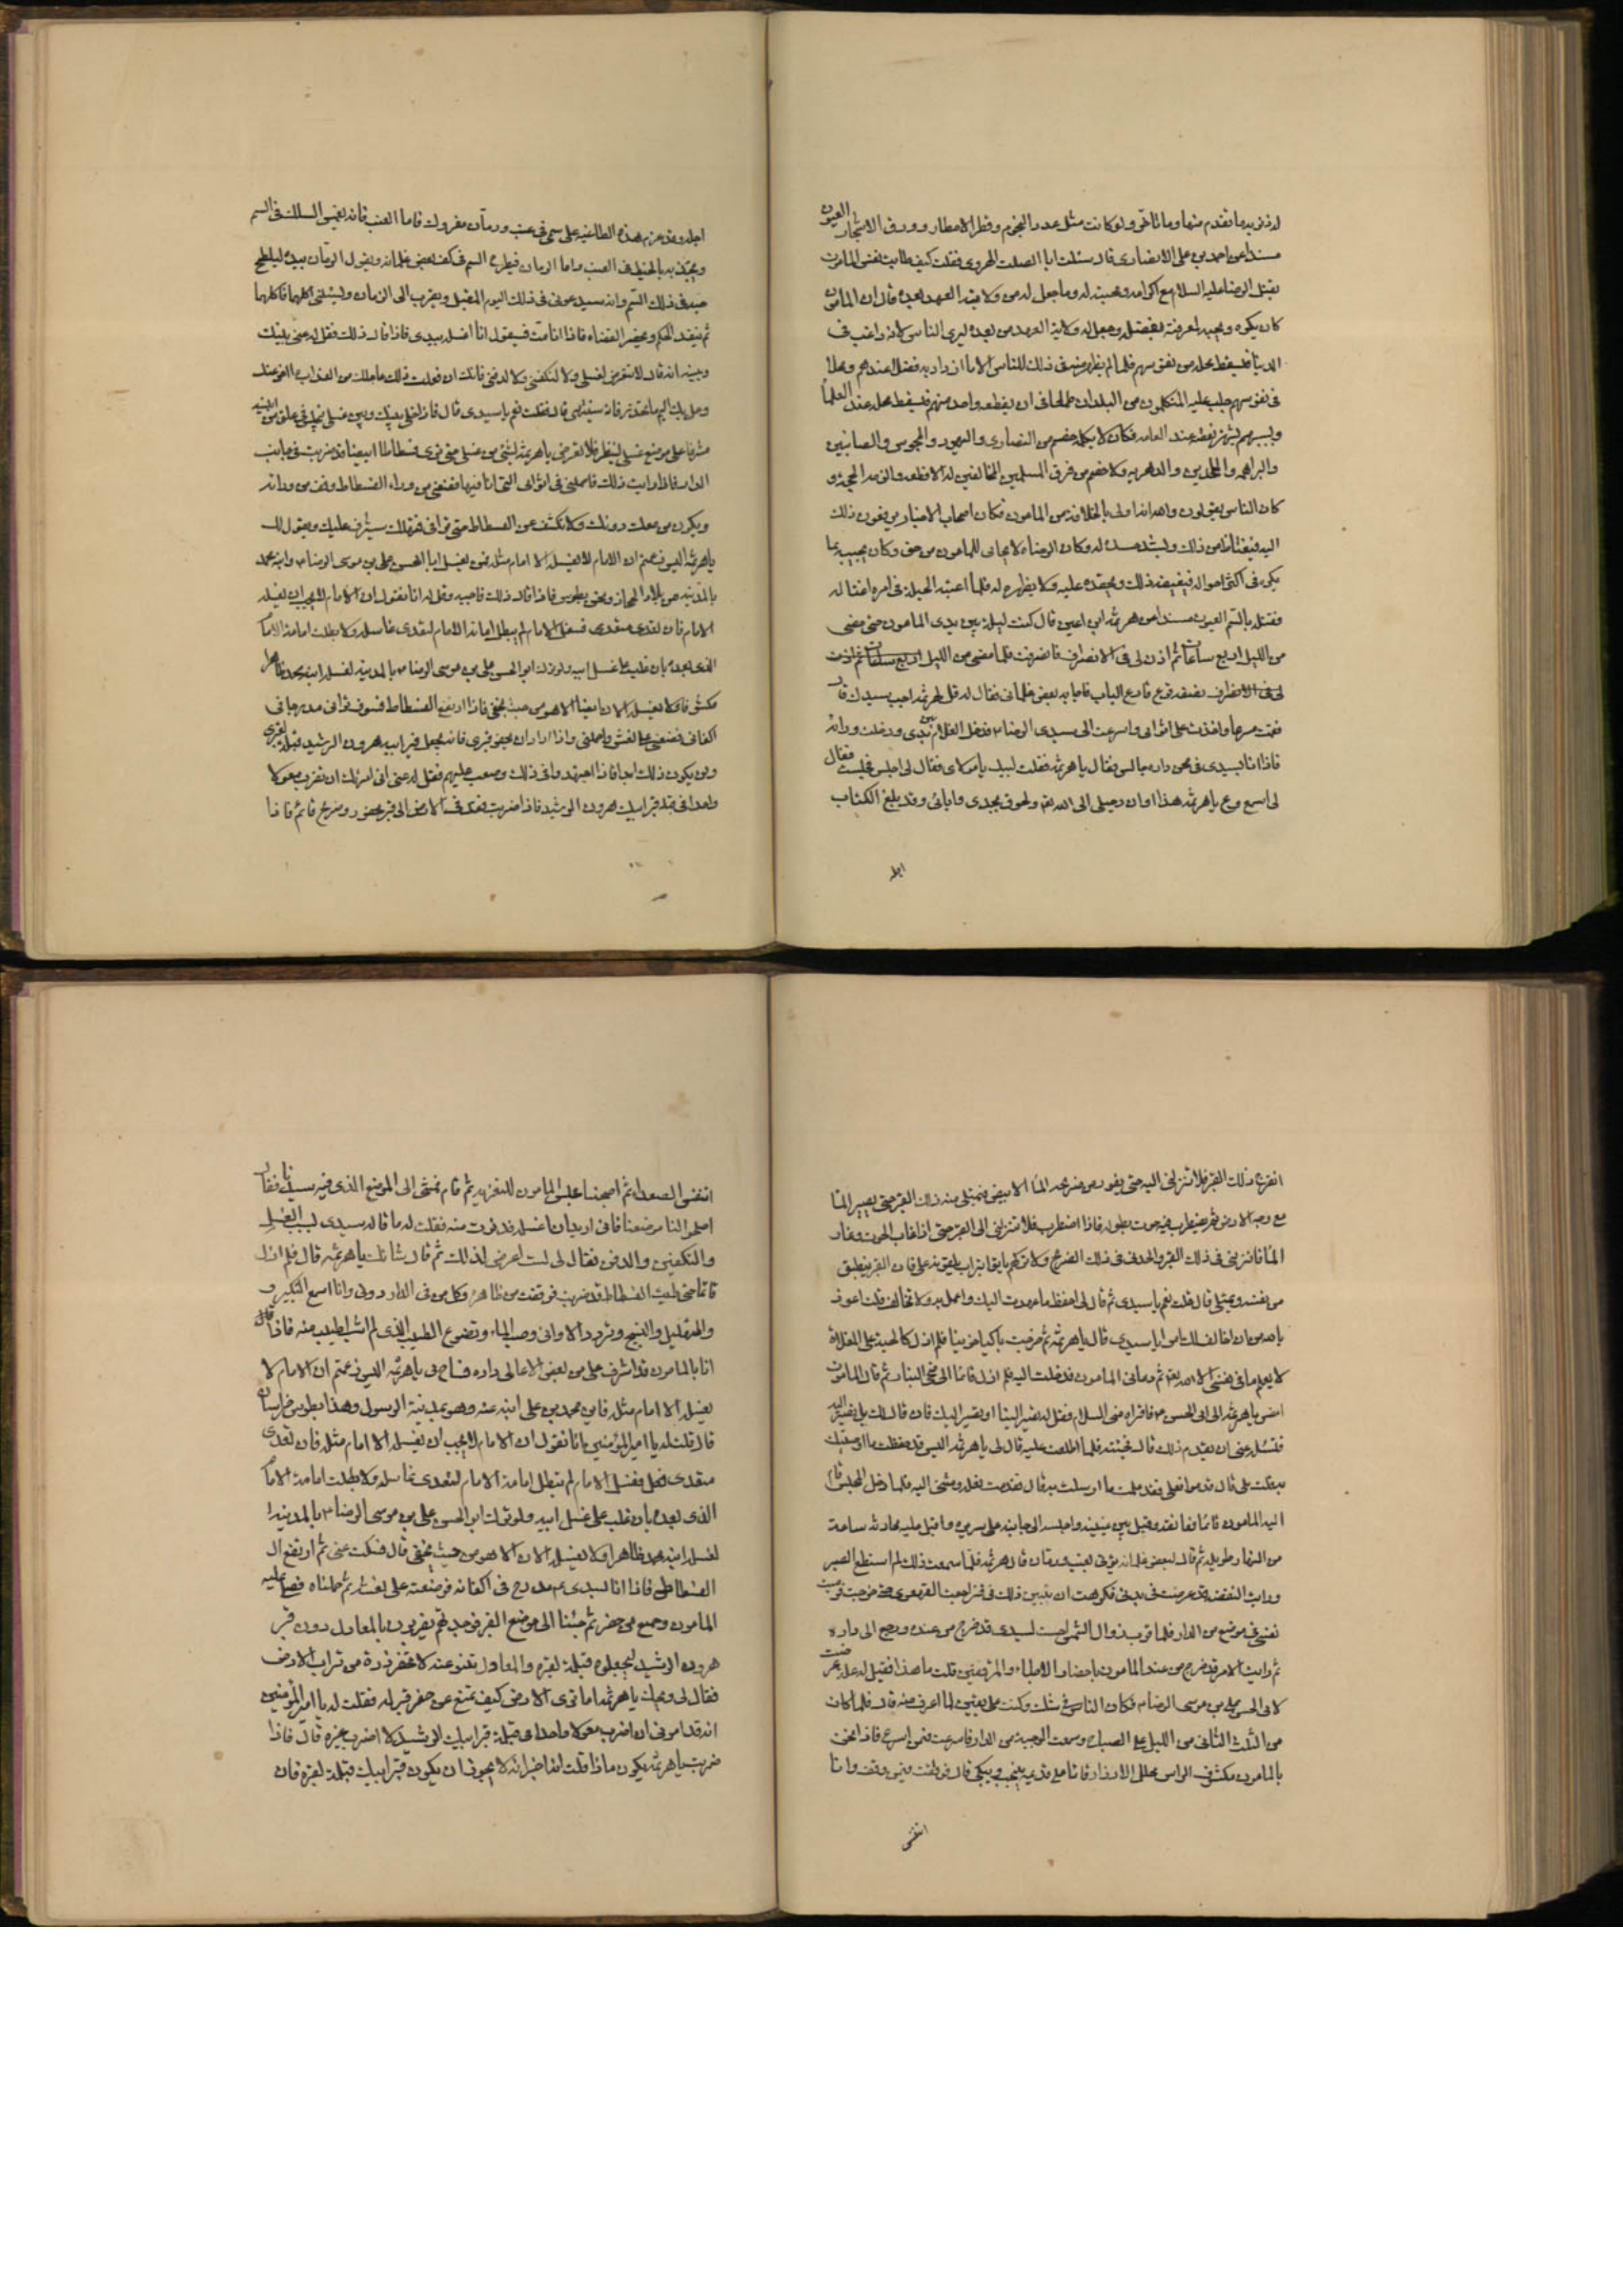 له ذنوبه ما تقدم منها وما تاخر ولو كانت مثل عدد النجوم وقطر الامطار وورق الاشجار العيون
مسندا عن احمد بن علي الانصاري قال سئلت ابا الصلت الهروي فقلت كيف طابت نفس المامون
بقتل الرضا عليه السلام مع اكرامه ومحبته له وما جعل له من ولاية العهد بعده قال ان المامون
كان يكرمه ويحبه لمعرفته بفضله وجعل له ولاية العهد من بعده ليرى الناس انه راغب في
الدنيا فيسقط محله من نفوسهم فلما لم يظهر منه في ذلك للناس الا ما ازداد به فضلا عندهم ومحلا
في نفوسهم جلب عليه المتكلمون من البلدان طمعا في ان يقطعه واحد منهم فيسقط محله عند العلما
وبسببهم يشتهر نقصه عند العامه فكان لا يكلمه خصم من النصارى واليهود والمجوس والصابئين
والبراهمه والملحدين والدهريه ولا خصم من فرق المسلمين المخالفين له الا قطعه والزمه الحجة و
كان الناس يقولون والله انه اولى بالخلافة من المامون فكان اصحاب الاخبار يرفعون ذلك
اليه فيغتاظ من ذلك ويشتد حسده له وكان الرضا لا يحابي المامون من حق وكان يجيبه بما
يكره في اكثر احواله فيغيضه ذلك ويحقده عليه ولا يظهره له فلما اعيته الحيلة في امره اغتاله
فقتله بالسم العيون مسندا عن هرثمة ابن اعين قال كنت ليلة بين يدي المامون حتى مضى
من الليل اربع ساعات ثم اذن لي في الانصراف فانصرفت فلما مضى من الليل
نصفه قرع قارع الباب فاجابه بعض غلماني فقال له قل لهرثمه اجب سيدك قال
فقمت مسرعا واخذت على اثوابي واسرعت الى سيدي الرضا فدخل الغلام بين يدي ودخلت وراءه
فاذا انا بسيدي في صحن داره جالس فقال يا هرثمه فقلت لبيك يا مولاي فقال لي اجلس فجلست فقال
لي اسمع وع يا هرثمه هذا اوان رحيلي الى الله تعه ولحوقي بجدي وابائي وقد بلغ الكتاب
اجله
اجله وقد عزم هذا الطاغيه على سمي في عنب ورمان مفروك فاما العنب فانه يغمس السلك في السم
ويجذبه بالخيط في العنب واما الرمان فيطرح السم في كف بعض غلمانه ويفرك الرمان بيده ليلطخ
حبه في ذلك السم وانه سيدعوني في ذلك اليوم المقبل ويقرب الي الرمان ويسئلني اكلها فاكلها
ثم ينفذ الحكم ويحضر القضاء فاذا انا مت فسيقول انا اغسله بيدي فاذا قال ذلك فقل له عني بينك
وبينه انه قال لا تتعرض لغسلي ولا لتكفيني ولا لدفني فانك ان فعلت ذلك عاجلك من العذاب ما اخر عنك
وحل بك اليم ما تحذر فانه سينتهي قال فقلت نعم يا سيدي قال فاذا خلى بينك وبين غسلي فيجلس في علو من ابنيته
مشرفا على موضع غسلي لينظر فلا تعرض يا هرثمة لشئ من غسلي حتى ترى فسطاطا ابيضا قد ضربت في جانب
الدار فاذا رايت ذلك فاحملني في اثوابي التي انا فيها فضعني من وراء الفسطاط وقف من ورائه
ويكون من معك دونك ولا تكشف عن الفسطاط حتى تراني فتهلك سيشرف عليك ويقول لك
يا هرثمة اليس زعمتم ان الامام لا يغسله الا امام مثله فمن يغسل ابا الحسن علي بن موسى الرضا وابنه محمد
بالمدينه من بلاد الحجاز ونحن بطوس فاذا قال ذلك فاجبه وقل له انا نقول ان الامام لا يجب ان يغسله
الا امام فان تعدى متعدي فغسل الامام لم يبطل امامة الامام لتعدي غاسله ولا بطلت امامة الامام
الذي بعده بان غلب على غسل ابيه ولو ترك ابو الحسن علي بن موسى الرضا بالمدينه لغسله ابنه محمد ظاهرا
مكشوفا ولا يغسله الان ايضا الا هو من حيث يخفي فاذا ارتفع الفسطاط فسوف تراني مدرجا في
اكفاني فضعني على نعش واحملني واذا اراد ان يحفر قبري فانه يجعل قبر ابيه هرون الرشيد قبلة لقبري
ولن يكون ذلك ابدا فاذا اجتهد وافي ذلك وصعب عليهم فقل له عني اني امرتك ان تضرب معولا
واحدا في قبلة قبر ابيك هرون الرشيد فاذا ضربت نفذ في الارض الى قبر محفور وضريح قائم فاذا
انفرج ذلك القبر فلا تنزلني اليه حتى يفور من ضريحه الماء الابيض فيمتلي منه ذلك القبر حتى يصير الما
مع وجه الارض ثم يضطرب فيه حوت بطوله فاذا اضطرب فلا تنزلني الى القبر حتى اذا غاب الحوت وغار
الما فانزلني في ذلك القبر والحدني في ذلك الضريح ولا تتركهم ياتوا بتراب يلقونه علي فان القبر ينطبق
من نفسه ويمتلي قال قلت نعم يا سيدي ثم قال لي احفظ ما عهدت اليك واعمل به ولا تخالف قلت اعوذ
بالله من ان اخالف لك امرا يا سيدي قال يا هرثمه ثم خرجت باكيا حزينا فلم ازل كالحبة على المقلاة
لا يعلم ما في نفسي الا الله تعه ثم دعاني المامون فدخلت اليه فلم ازل قائما الى ضحى النهار ثم قال المامون
امض يا هرثمه الى ابي الحسن فاقراه مني السلام وقل له تصير الينا او نصير اليك فان قال لك بل نصير اليه
فتسئله عني ان يقدم ذلك قال فجئته فلما اطلعت عليه قال لي يا هرثمه اليس قد حفظت ما اوصيتك
به قلت بلى قال قدموا نعلي فقد علمت ما ارسلك به قال فقدمت نعله ومشى اليه فلما دخل المجلس قام
اليه المامون قائما فعانقه وقبل بين عينيه واجلسه الى جانبه على سريره واقبل عليه يحادثه ساعة
من النهار طويله ثم قال لبعض غلمانه يؤتى بعنب ورمان قال هرثمه فلما سمعت ذلك لم استطع الصبر
ورايت النفضة قد عرضت في بدني فكرهت ان يتبين ذلك في فتراجعت القهقرى حتى خرجت فرميت
نفسي في موضع من الدار فلما قرب زوال الشمس احست لسيدي قد خرج من عنده ورجع الى داره
ثم رايت الامر قد خرج من عند المامون باحضار الاطباء والمترفقين قلت ما هذا فقيل له علة عرضت
لابي الحسن علي بن موسى الرضا فكان الناس في شك وكنت على يقين لما اعرف منه قال فلما كان
من الثلث الثاني من الليل علا الصياح وسمعت الوجبة من الدار فاسرعت فيمن اسرع فاذا نحن
بالمامون مكشوف الراس محلل الازرار قائما على قدميه ينتحب ويبكي قال فوقفت فيمن وقف وانا
اتنفس
اتنفس الصعداء ثم اصبحنا فجلس المامون للتعزيه ثم قام فمشى الى الموضع الذي فيه سيدنا فقال
اصلحوا لنا موضعا فاني اريد ان اغسله فدنوت منه فقلت له ما قال سيدي بسبب الغسل
والتكفين والدفن فقال لي لست اعرض لذلك ثم قال شانك يا هرثمه قال فلم ازل
قائما حتى رايت الفسطاط قد ضرب فوقفت من ظاهره وكل من في الدار دوني وانا اسمع التكبير و
والتهليل والتسبيح وتردد الاواني وصب الماء وتضوع الطيب الذي لم اشم اطيب منه قال فاذا
انا بالمامون قد اشرف علي من بعض الاعالي داره فصاح بي يا هرثمه اليس زعمتم ان الامام لا
يغسله الا امام مثله فاين محمد بن علي ابنه عنه وهو بمدينة الرسول وهذا بطوس خراسان
قال قلت له يا امير المؤمنين انا نقول ان الامام لا يجب ان يغسله الا امام مثله فان تعدى
متعدي فغسل الامام لم تبطل امامة الامام لتعدي غاسله ولا بطلت امامة الامام
الذي بعده بان غلب على غسل ابيه ولو ترك ابو الحسن علي بن موسى الرضا بالمدينة
لغسله ابنه محمد ظاهرا ولا يغسله الان الا هو من حيث يخفى قال فسكت عني ثم ارتفع ال
الفسطاط فاذا انا لسيدي مدرج في اكفانه فوضعته على نعشه ثم حملناه فصلى عليه
المامون وجميع من حضر ثم جئنا الى موضع القبر فوجدتهم يضربون بالمعاول دون قبر
هرون الرشيد ليجعلوه قبلة لقبره والمعاول تنبو عنه لا تحفر ذرة من تراب الارض
فقال لي ويحك يا هرثمه اما ترى الارض كيف تمتنع من حفر قبر له فقلت له يا امير المؤمنين
انه قد امرني ان اضرب معولا واحدا في قبلة قبر ابيك الرشيد لا اضرب غيره قال فاذا
ضربت يا هرثمه يكون ماذا قلت انه اخبر انه لا يجوز ان يكون قبر ابيك قبلة لقبره فان